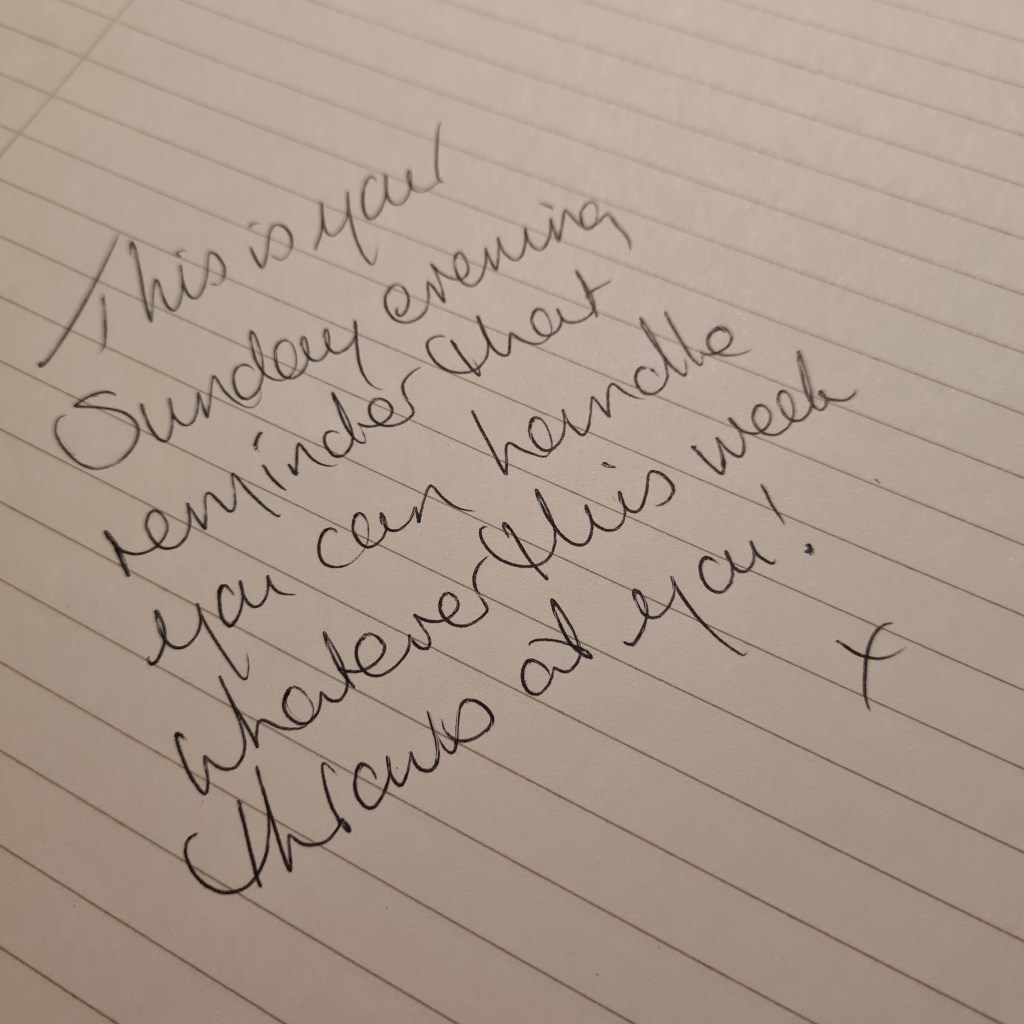 This is your
Sunday evening
reminder that
you can handle
whatever this week
throws at you!
x